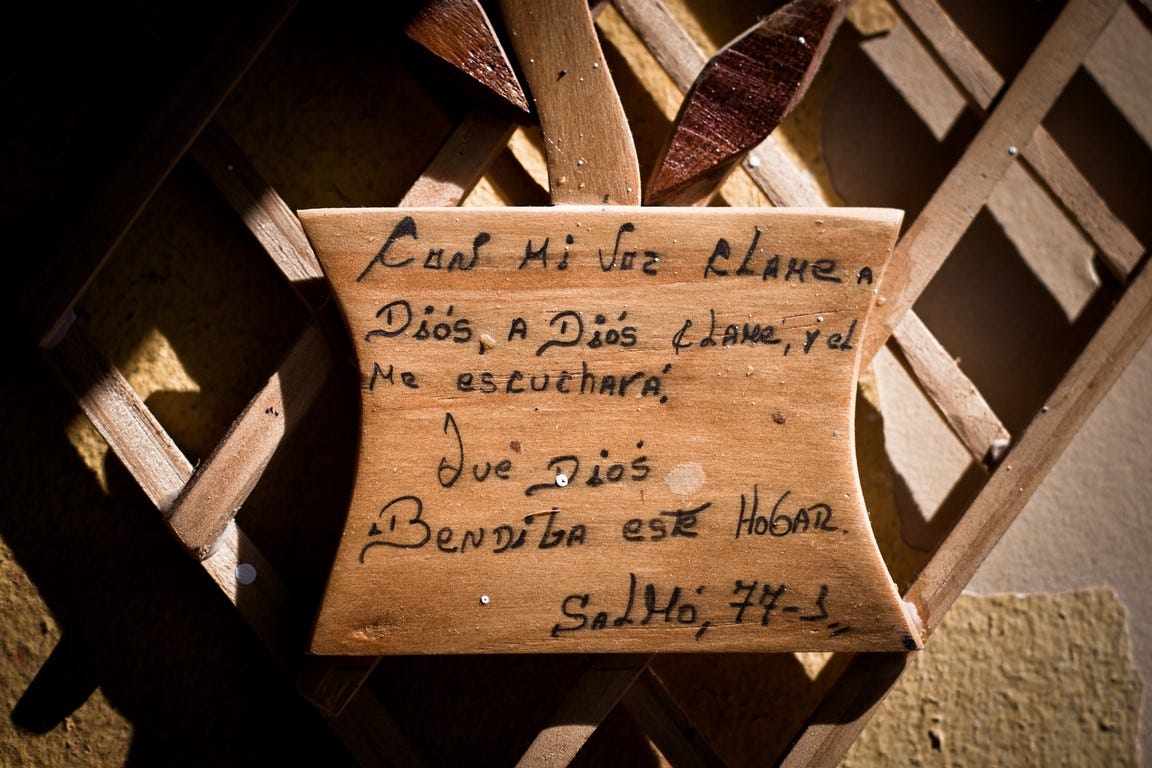 Con Mi Voz CLAMe A
Diós, A Diós CLAMé, y eL
Me escuchará,
Que Diós
BendiGA este HoGAR.
SaLMó, 77-1,,